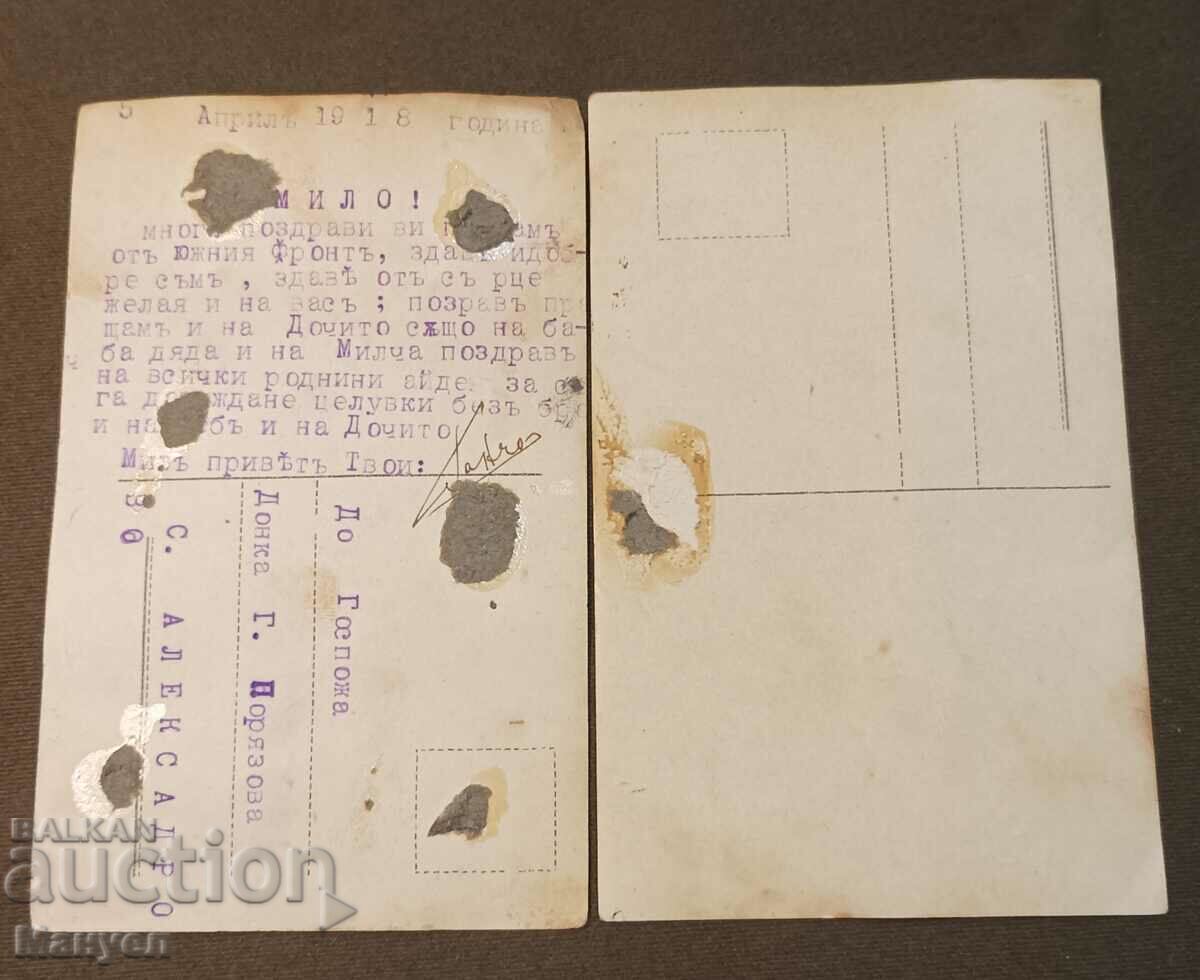 5 Априлъ 1918 година
МИЛО!
много поздрави ви
отъ южния Фронтъ, здавъ идоб-
ре съмъ , здавѣ отъ съ рце
желая и на васъ ; позравъ пра
щамъ и на Дочито сѫщо на ба-
ба дяда и на Милча поздравъ
на всички роднини айде за с
га целувки безъ
и на и на Дочито
привѣтъ Твои:
До Госпожа
Донка Г. Порязова
С. АЛЕКСАДРО
BALKAN
auction
Мануел